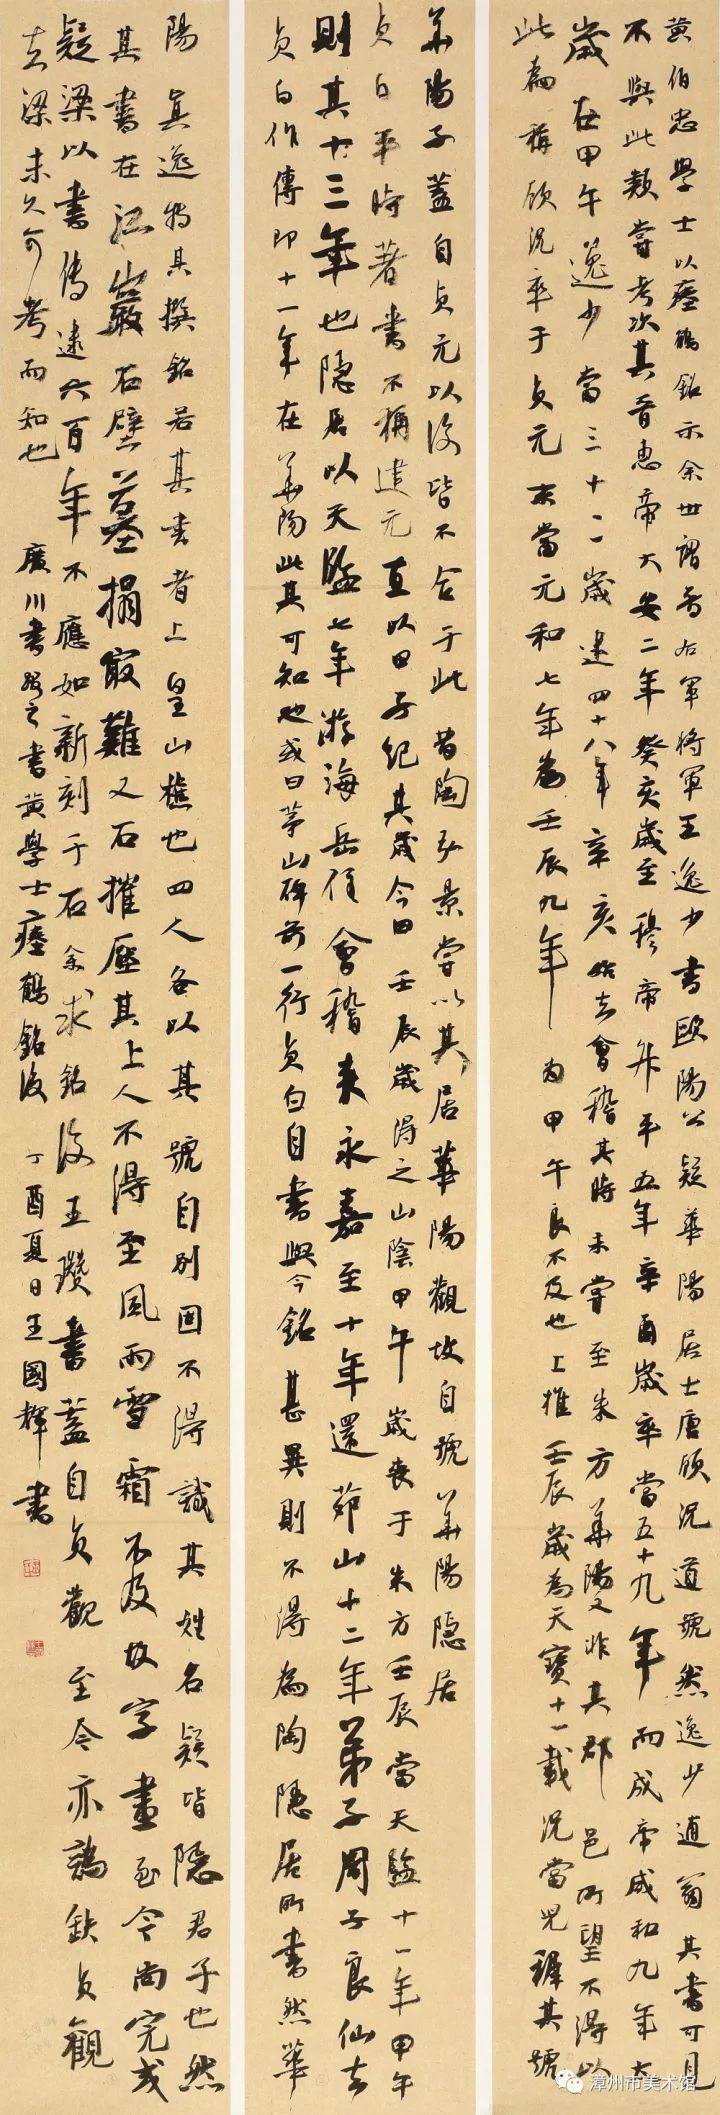 黄伯思學士以瘞鶴銘示余世謂晉右軍將軍王逸少書歐陽公疑華陽居士唐顧況道號然逸少逋翁其書可見
不與此類嘗考次其晉惠帝大安二年癸亥歲至穆帝升平五年辛酉歲卒當五十九年而成帝咸和九年大
歲在甲午逸少當三十二歲逮四十八年辛亥始去會稽其時未嘗至朱方華陽又非其郡邑所望不得以
此為稱顧況卒于貞元末當元和七年為壬辰九年為甲午良不及也上推壬辰歲為天寶十一載況當兒穉其號
華陽子蓋自貞元以後皆不合于此昔陶弘景嘗以其居華陽觀故自號華陽隱居
貞白平時著書不稱建元直以甲子紀其歲今曰壬辰歲得之山陰甲午歲丧于朱方壬辰當天監十一年甲午
則其十三年也隱居以天監七年游海岳住會稽来永嘉至十年還茆山十二年弟子周子良仙去
貞白作傳即十一年在華陽此其可知也或曰茅山碑前一行貞白自書與今銘甚異則不得為陶隱居所書然華
陽真逸特其撰銘若其書者上皇山樵也四人各以其號自别固不得識其姓名疑皆隱君子也然
其書在江巖石壁摹搨取難又石摧壓其上人不得至風雨雪霜不及故字畫至今尚完或
疑梁以書傳逮六百年不應如新刻于石余求銘後王瓚書蓋自貞觀至今亦謝缺貞觀
去梁未久可考而知也 廣川書跋之書黄學士瘞鶴銘後 丁酉夏日王國輝書
漳州市美术馆